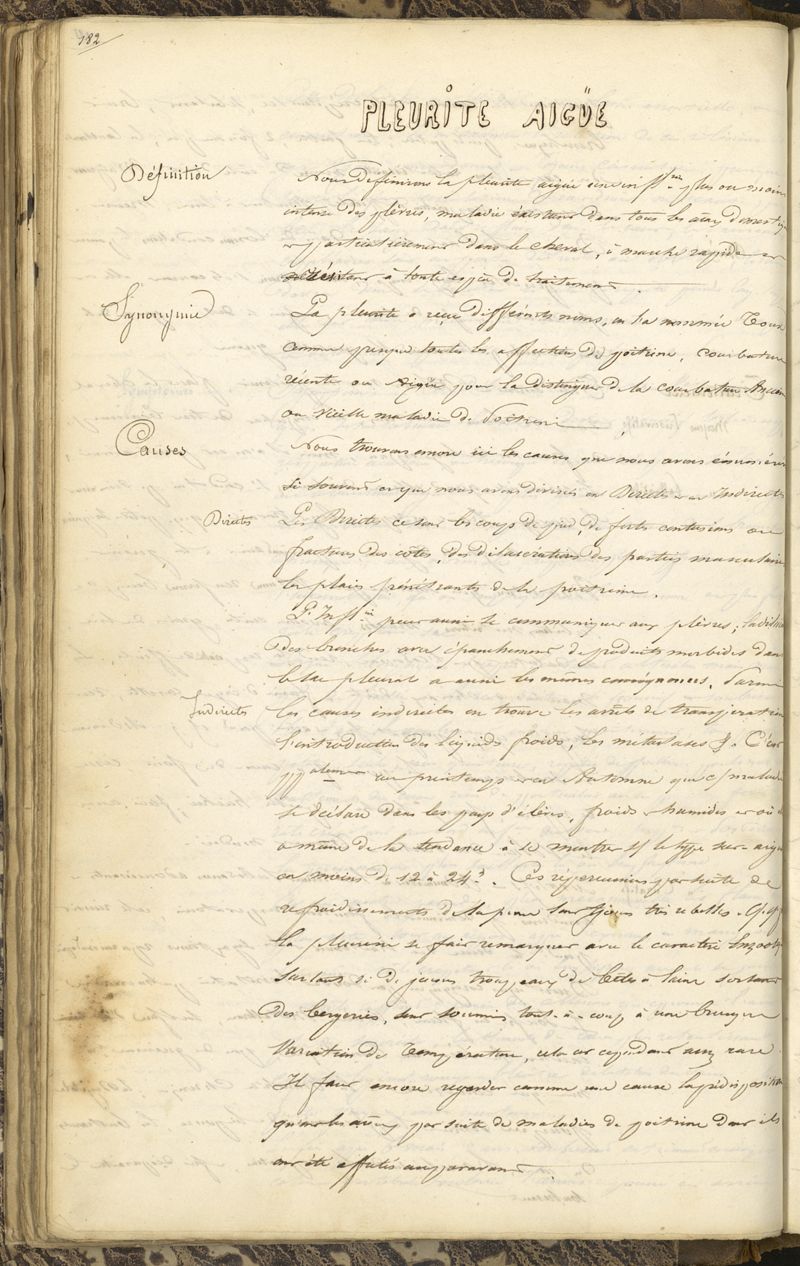 182
PLEURITE AIGÜE
Définition
Nous définirons la pleurite aigüe une inffon plus ou moins
intense des plèvres, maladie existant dans tous les aux domestiq
et particulièrement dans le cheval, à marche rapide et
résistant à toute espèce de traitement.
Synonymie
La pleurite a reçu différents noms, on l'a nommée Toux
comme presque toutes les affections de poitrine, Courbature
récente ou Aigüe pour la distinguer de la courbature Ancien
ou Vieille maladie de Poitrine.
Causes
Nous trouvons encore ici les causes que nous avons énumérées
si souvent et que nous avons divisées en Directes et en Indirectes
Directes
Les Directes ce sont les coups de pied, de fortes contusions ou
fractures des côtes, des dilacérations des parties musculaires
les plaies pénétrantes de la poitrine.
L'Inffon peut aussi se communiquer aux plèvres;
des bronches avec épanchement de produits morbides dans
le sac pleural a aussi les mêmes conséquences. Parmi
Indirectes
les causes indirectes on trouve les arrêts de transpiration
l'introduction des liquides froids, les métastases &. C'est
au printemps et en Automne que cette maladie
se déclare dans les pays d'élèves, froids et humides et où
a même de la tendance à se montrer sous le type sur-aigu
en moins de 12 à 24 h. Ces répercussions par suite de
refroidissements de la peau sont tjours très rebelles.
La pleurésie se fait remarquer avec le caractère Enzooti
surtout si de jeunes troupeaux de bêtes à laine sortant
des bergeries, sont soumis tout-à-coup à une brusque
Variation de Température, cela est cependant assez rare.
Il faut encore regarder comme une cause la prédisposition
qu'ont les aux par suite de maladies de poitrine dont ils
ont été affectés auparavant.